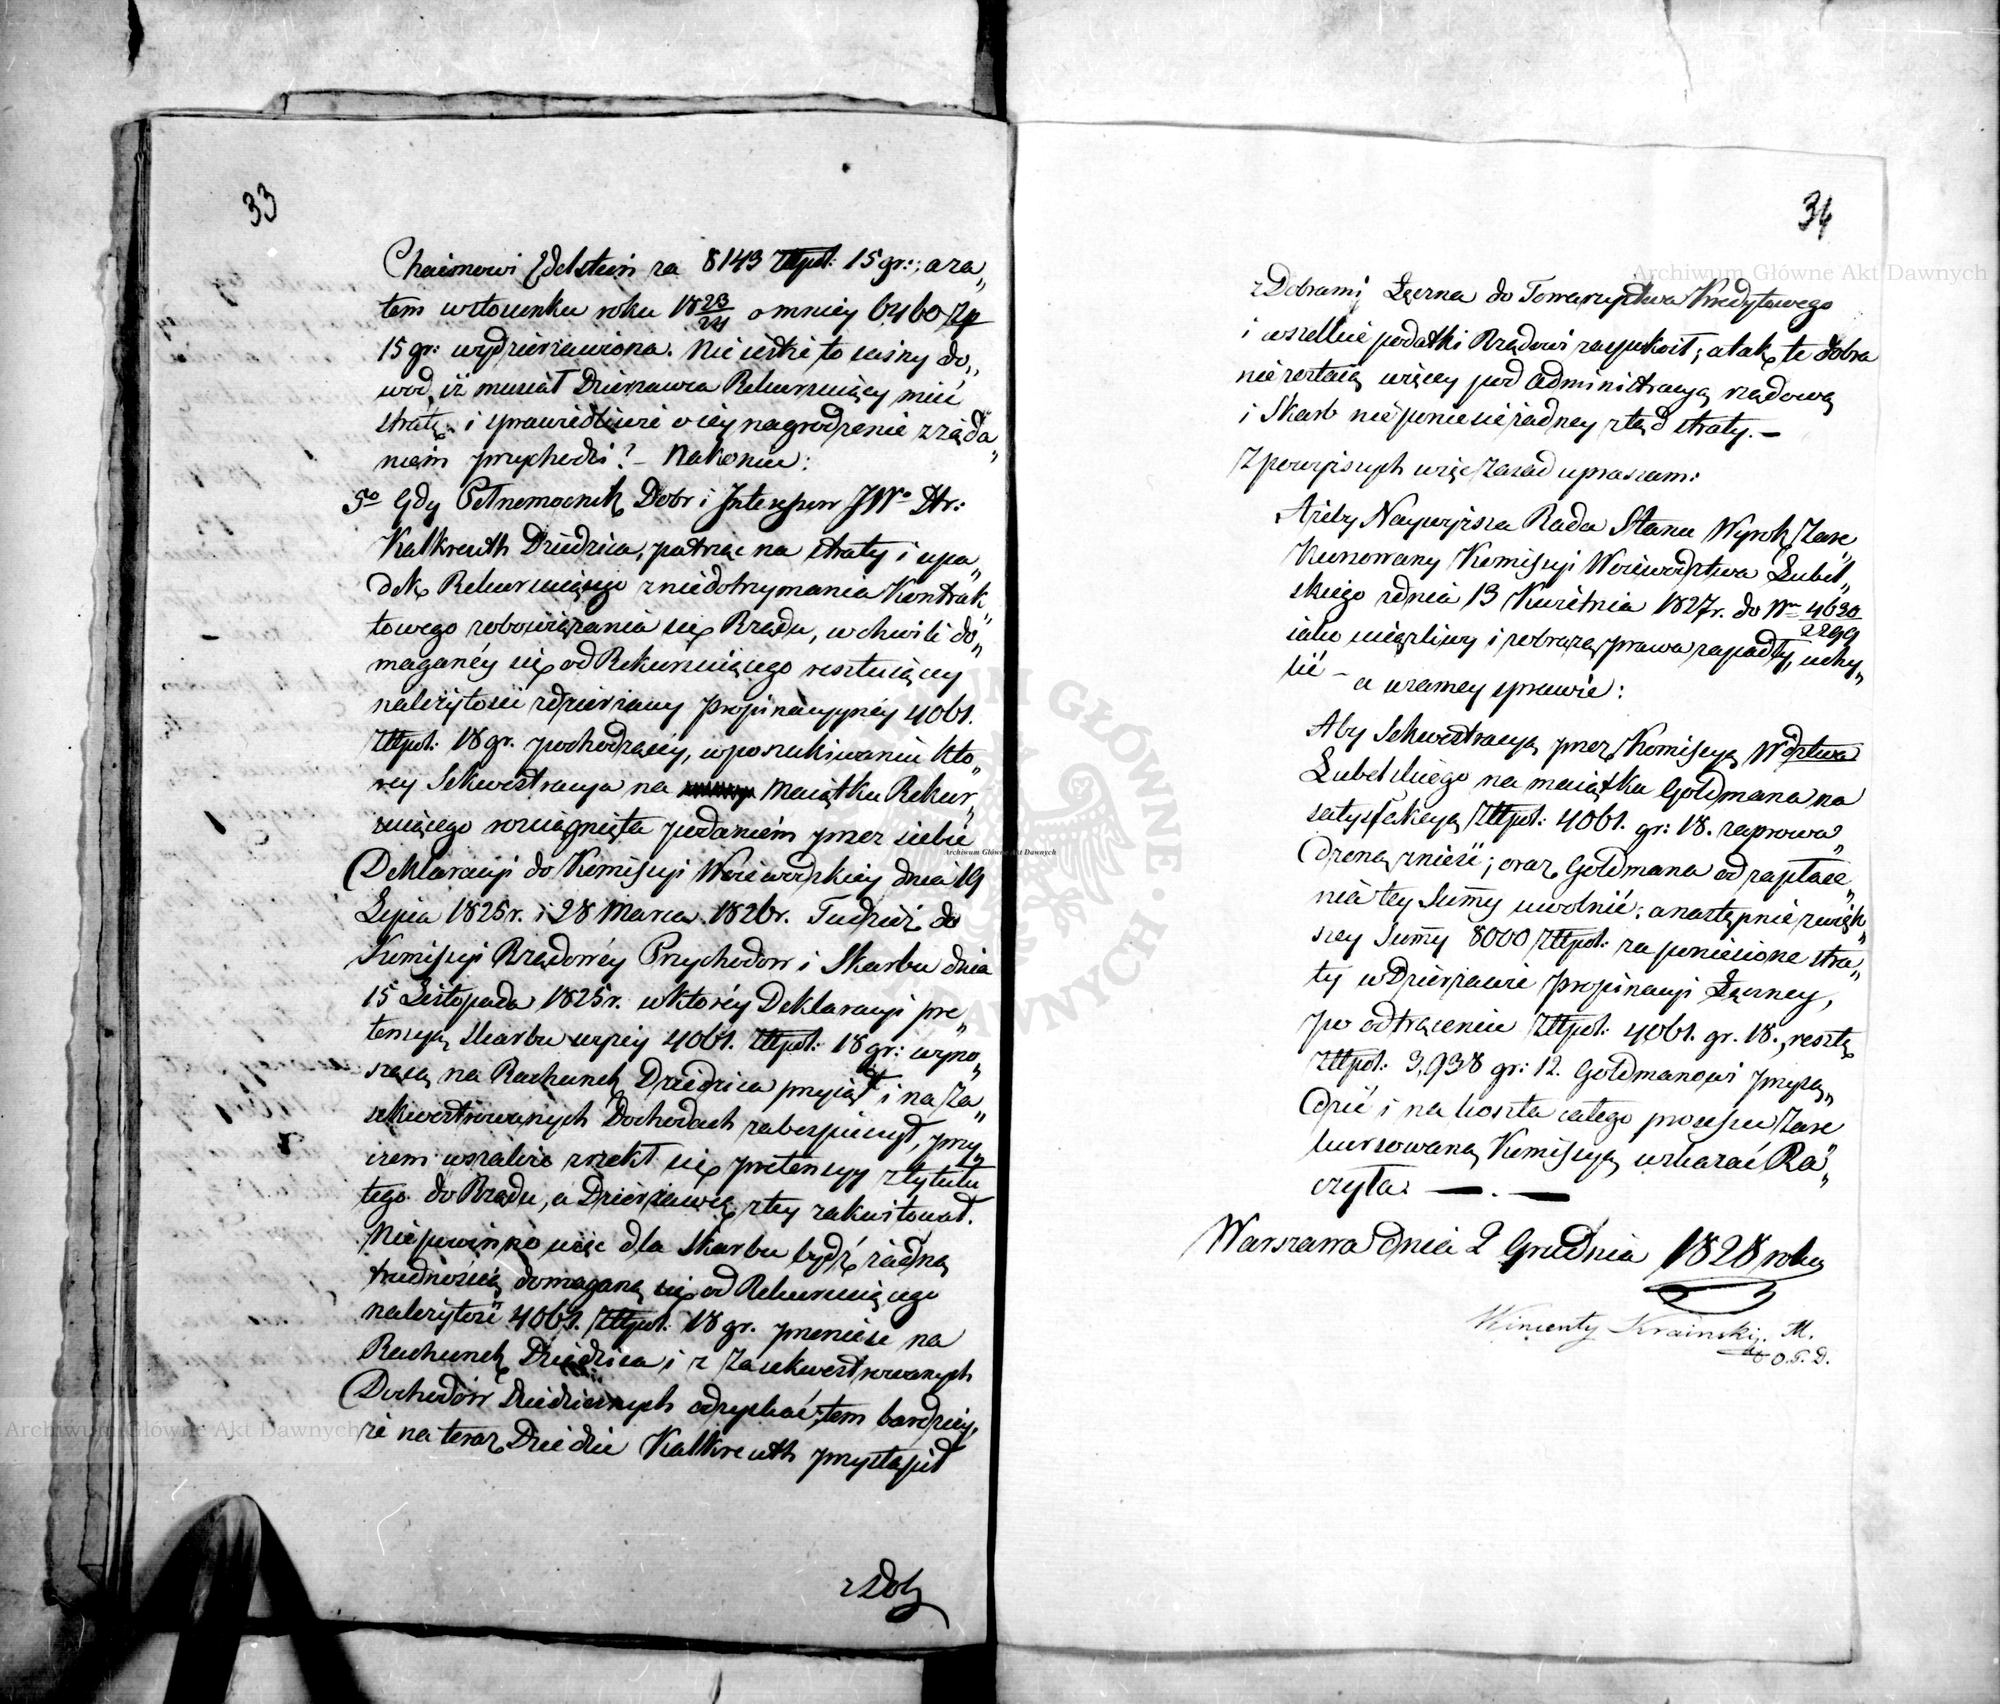 33
Chaimowi Edelstein za 8143 Złtpol: 15 gr:; a za„
tem w stosunku roku 18 23/24 o mniey 6460 Zp
15 gr: wydzierżawiona. Nie iestże to iasny do„
wod, iż musiał Dzierżawca Rekurruiący mieć
stratę i sprawiedliwie o iey nagrodzenie z żąda„
niem przychodzi? – Nakoniec:
5o Gdy Pełnomocnik Dobr i Interessow JWo Hr:
Kalkreuth Dziedzica, patrząc na straty i upa„
dek Rekurruiącego z niedotrzymania Kontrak„
towego zobowiązania się Rządu, w chwili do„
maganéy się od Rekurruiącego resztuiącey
należytości z dzierżawy propinacyynéy 4061.
Złtpol: 18 gr. pochodzącey, w poszukiwaniu kto„
rey Sekwestracya na Maiątku Rekur„
ruiącego rozciągnięta podaniem przez siebie
Deklaracyi do Kommissyi Woiewodzkiey dnia 19
Lipca 1825 r. i 28 Marca 1826 r. Tudzież do
Kommissyi Rządowéy Przychodow i Skarbu dnia
15 Listopada 1825 r. w którey Deklaracyi pre„
tensyą Skarbu wyżey 4061. Złtpol: 18 gr: wyno„
szącą na Rachunek Dziedzica przyiął i na Za„
sekwestrowanych Dochodach zabezpieczył, przy„
czem wszakże zrzekł się pretensyy z tytułu
tego do Rządu, a Dzierżawcę z tey zakwitował.
Niepowinno więc dla Skarbu bydź żadną
trudnością domaganą się od Rekurruiącego
należytość 4061. Złtpol: 18 gr. przenieść na
Rachunek Dziedzica i z Zasekwestrowanych
Dochodów Dziedzicznych odzyskać; tem bardziey,
że na teraz Dziedzic Kalkreuth przystąpił
z Dob
34
z Dobrami Łęczna do Towarzystwa Kredytowego
i wszelkie podatki Rządowi zaspokoił; a tak te dobra
nie zostaią więcey pod administracyą rządową
i Skarb nie poniesie żadney ztąd straty. –
Z powyższych więc Zasad upraszam:
Ażeby Naywyższa Rada Stanu Wyrok Zare„
kursowany Kommissyi Woiewodztwa Lubel„
skiego z dnia 13 Kwietnia 1827 r. do Nru 4630/2299
iako uciążliwy i z obrazą prawa zapadły, uchy„
lić – a w samey sprawie:
Aby Sekwestracyą przez Kommissyą Wdztwa
Lubelskiego na maiątku Goldmana na
satysfakcyą Złtpol: 4061. gr: 18. zaprowa„
dzoną znieść; oraz Goldmana od zapłace„
nia tey Summy uwolnić; a następnie z więk„
szey Summy 8000 Złtpol: za poniesione stra„
ty w Dzierżawie propinacyi Łęczney,
po odtrąceniu Złtpol: 4061. gr. 18., resztę
Złtpol: 3,938 gr: 12. Goldmanowi przysą„
dzić i na koszta całego processu Zare„
kursowaną Kommissyą wskazać Ra„
czyła. — . —
Warszawa dnia 2 Grudnia 1828 roku
Wincenty Krainski, M.
O. P. D.
Archiwum Główne Akt Dawnych
Archiwum Główne Akt Dawnych
Archiwum Główne Akt Dawnych
ARCHIWUM GŁÓWNE AKT DAWNYCH